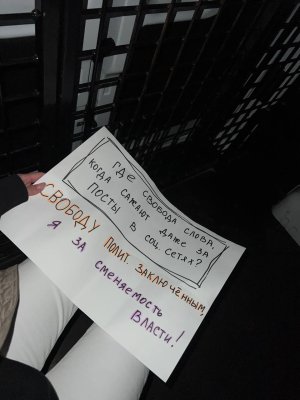 ГДЕ СВОБОДА СЛОВА,
КОГДА САЖАЮТ ДАЖЕ ЗА
ПОСТЫ В СОЦ СЕТЯХ?
СВОБОДУ ПОЛИТ. ЗАКЛЮЧЁННЫМ,
Я ЗА СМЕНЯЕМОСТЬ
ВЛАСТИ!